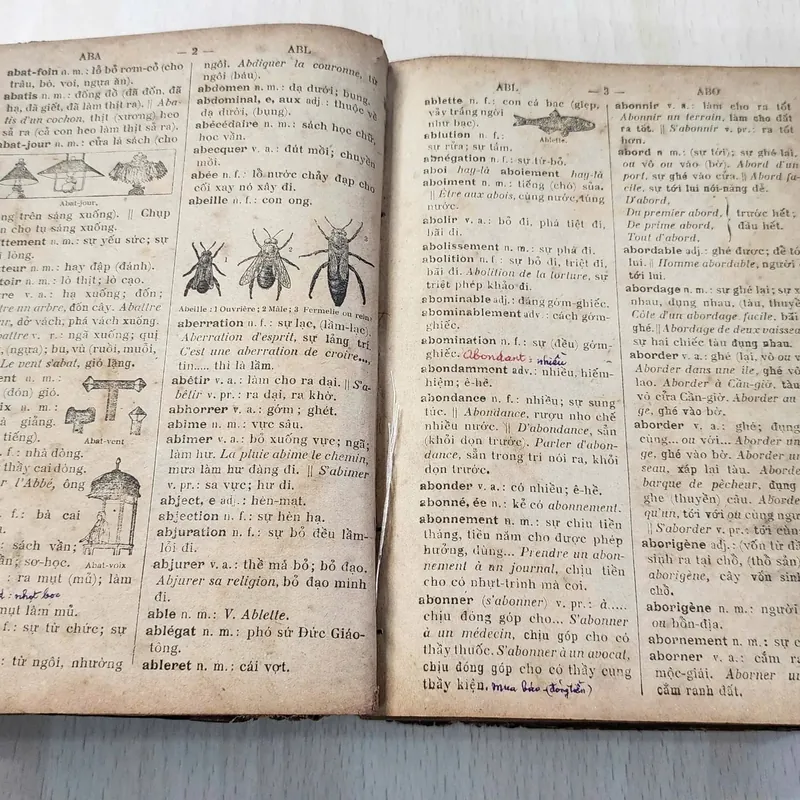 ABA — 2 — ABL
abat-foin n. m.: lỗ bỏ rơm-cỏ (cho
trâu, bò, voi, ngựa ăn).
abatis n. m.: đống đồ (đã đốn, đã
hạ, đã giết, đã làm thịt ra). || Aba-
tis d'un cochon, thịt (xương) heo
sả ra (cả con heo làm thịt sả ra).
abat-jour n. m.: cửa lá sách (cho
Abat-jour.
trên sáng xuống). || Chụp
cho tụ sáng xuống.
ttement n. m.: sự yếu sức; sự
lòng.
teur n. m.: hay đập (đánh).
toir n. m.: lò thịt; lò cạo.
re v. a.: hạ xuống; đốn;
tre un arbre, đốn cây. Abattre
ur, dở vách, phá vách xuống.
battre v. r.: ngã xuống; quị
(ngựa).; bu, vù (ruồi, muỗi,
Le vent s'abat, gió lặng.
ent n. m.:
(dón) gió.
oix n. m.:
à giảng.
tiếng).
Abat-vent
f.: nhà dòng.
thầy cai dòng.
r l'Abbé, ông
f.: bà cai
sách vần;
ăn; sơ-học.
Abat-voix
: ra mụt (mủ); làm
: nhọt bọc
mụt làm mủ.
f.: sự từ chức; sự
: từ ngôi, nhường
ngôi. Abdiquer la couronne, từ
ngôi (báu).
abdomen n. m.: dạ dưới; bụng.
abdominal, e, aux adj.: thuộc về
dạ dưới, (bụng).
abécédaire n. m.: sách học chữ,
học vần.
abecquer v. a.: đút mồi; chuyền
mồi.
abée n. f.: lỗ nước chảy đạp cho
cối xay nó xảy đi.
abeille n. f.: con ong.
1 2 3
Abeille: 1 Ouvrière; 2 Mâle; 3 Fermelle ou reine
aberration n. f.: sự lạc, (lầm-lạc).
Aberration d'esprit, sự lảng trí.
C'est une aberration de croire...,
tin..... thì là lầm.
abêtir v. a.: làm cho ra dại. || S'a-
bêtir v. pr.: ra dại, ra khờ.
abhorrer v. a.: gớm; ghét.
abime n. m.: vực sâu.
abimer v. a.: bỏ xuống vực; ngã;
làm hư. La pluie abime le chemin,
mưa làm hư đàng đi. || S'abimer
v. pr.: sa vực; hư đi.
abject, e adj.: hèn-mạt.
abjection n. f.: sự hèn hạ.
abjuration n. f.: sự bỏ đều lầm-
lỗi đi.
abjurer v. a.: thề mà bỏ; bỏ đạo.
Abjurer sa religion, bỏ đạo mình
đi.
able n. m.: V. Ablette.
ablégat n. m.: phó sứ Đức Giáo-
tông.
ableret n. m.: cái vợt.
ABL — 3 — ABO
ablette n. f.: con cá bạc (giẹp,
vảy trắng ngời
như bạc).
Ablette.
ablution n. f.:
sự rửa; sự tắm.
abnégation n. f.: sự từ-bỏ.
aboi hay-là aboiement hay-là
aboiment n. m.: tiếng (chó) sủa.
|| Être aux abois, cùng nước, túng
nước.
abolir v. a.: bỏ đi, phá tiệt đi,
bãi đi.
abolissement n. m.: sự phá đi.
abolition n. f.: sự bỏ đi, triệt đi,
bãi đi. Abolition de la torture, sự
triệt phép khảo đi.
abominable adj.: đáng gớm-ghiếc.
abominablement adv.: cách gớm-
ghiếc.
abomination n. f.: sự (đều) gớm-
ghiếc. Abondant: nhiều
abondamment adv.: nhiều, hiếm-
hiệm; ê-hê.
abondance n. f.: nhiều; sự sung
túc. || Abondance, rượu nho chế
nhiều nước. || D'abondance, sẵn
(khỏi dọn trước). Parler d'abon-
dance, sẵn trong trí nói ra, khỏi
dọn trước.
abonder v. a.: có nhiều; ê-hề.
abonné, ée n.: kẻ có abonnement.
abonnement n. m.: sự chịu tiền
tháng, tiền năm cho được phép
hưởng, dùng... Prendre un abon-
nement à un journal, chịu tiền
cho có nhựt-trình mà coi.
abonner (s'abonner) v. pr.: à.....
chịu đóng góp cho... S'abonner
à un médecin, chịu góp cho có
thầy thuốc. S'abonner à un avocat,
chịu đóng góp cho có thầy cung
thầy kiện. mua báo (đóng tiền)
abonnir v. a.: làm cho ra tốt
Abonnir un terrain, làm cho đất
ra tốt. || S'abonnir v. pr.: ra tốt
hơn.
abord n. m.: (sự tới); sự ghé lại,
ou vô ou vào (bờ). Abord d'un
port, sự ghé vào cửa. || Abord fa-
cile, sự tới lui nói-năng dễ.
D'abord,
Du premier abord, trước hết;
De prime abord, đầu hết.
Tout d'abord,
abordable adj.: ghé được; dễ tới
lui. || Homme abordable, người
tới lui.
abordage n. m.: sự ghé lại; sự
nhau, đụng nhau, (tàu, thuyền
Côte d'un abordage facile, bãi
ghé. || Abordage de deux vaisseaux
sự hai chiếc tàu đụng nhau.
aborder v. a.: ghé (lại, vô ou v
Aborder dans une ile, ghé vô
lao. Aborder à Cần-giờ, tàu
vô cửa Cần-giờ. Aborder au
ge, ghé vào bờ.
aborder v. a.: ghé; đụng
cùng... ou với... Aborder un
ge, ghé vào bờ. Aborder un
seau, xáp lại tàu. Aborder
barque de pêcheur, đụng
ghe (thuyền) câu. Aborder
qu'un, tới với ou cùng người
|| S'aborder v. pr.: tới cùng
aborigène adj.: (vốn từ đầ
sinh ra tại chỗ, (thổ sản)
aborigène, cây vốn sinh
chỗ.
aborigène n. m.: người
ou bổn-địa.
abornement n. m.: sự c
aborner v. a.: cắm ra
mộc-giái. Aborner un
cắm ranh đất.